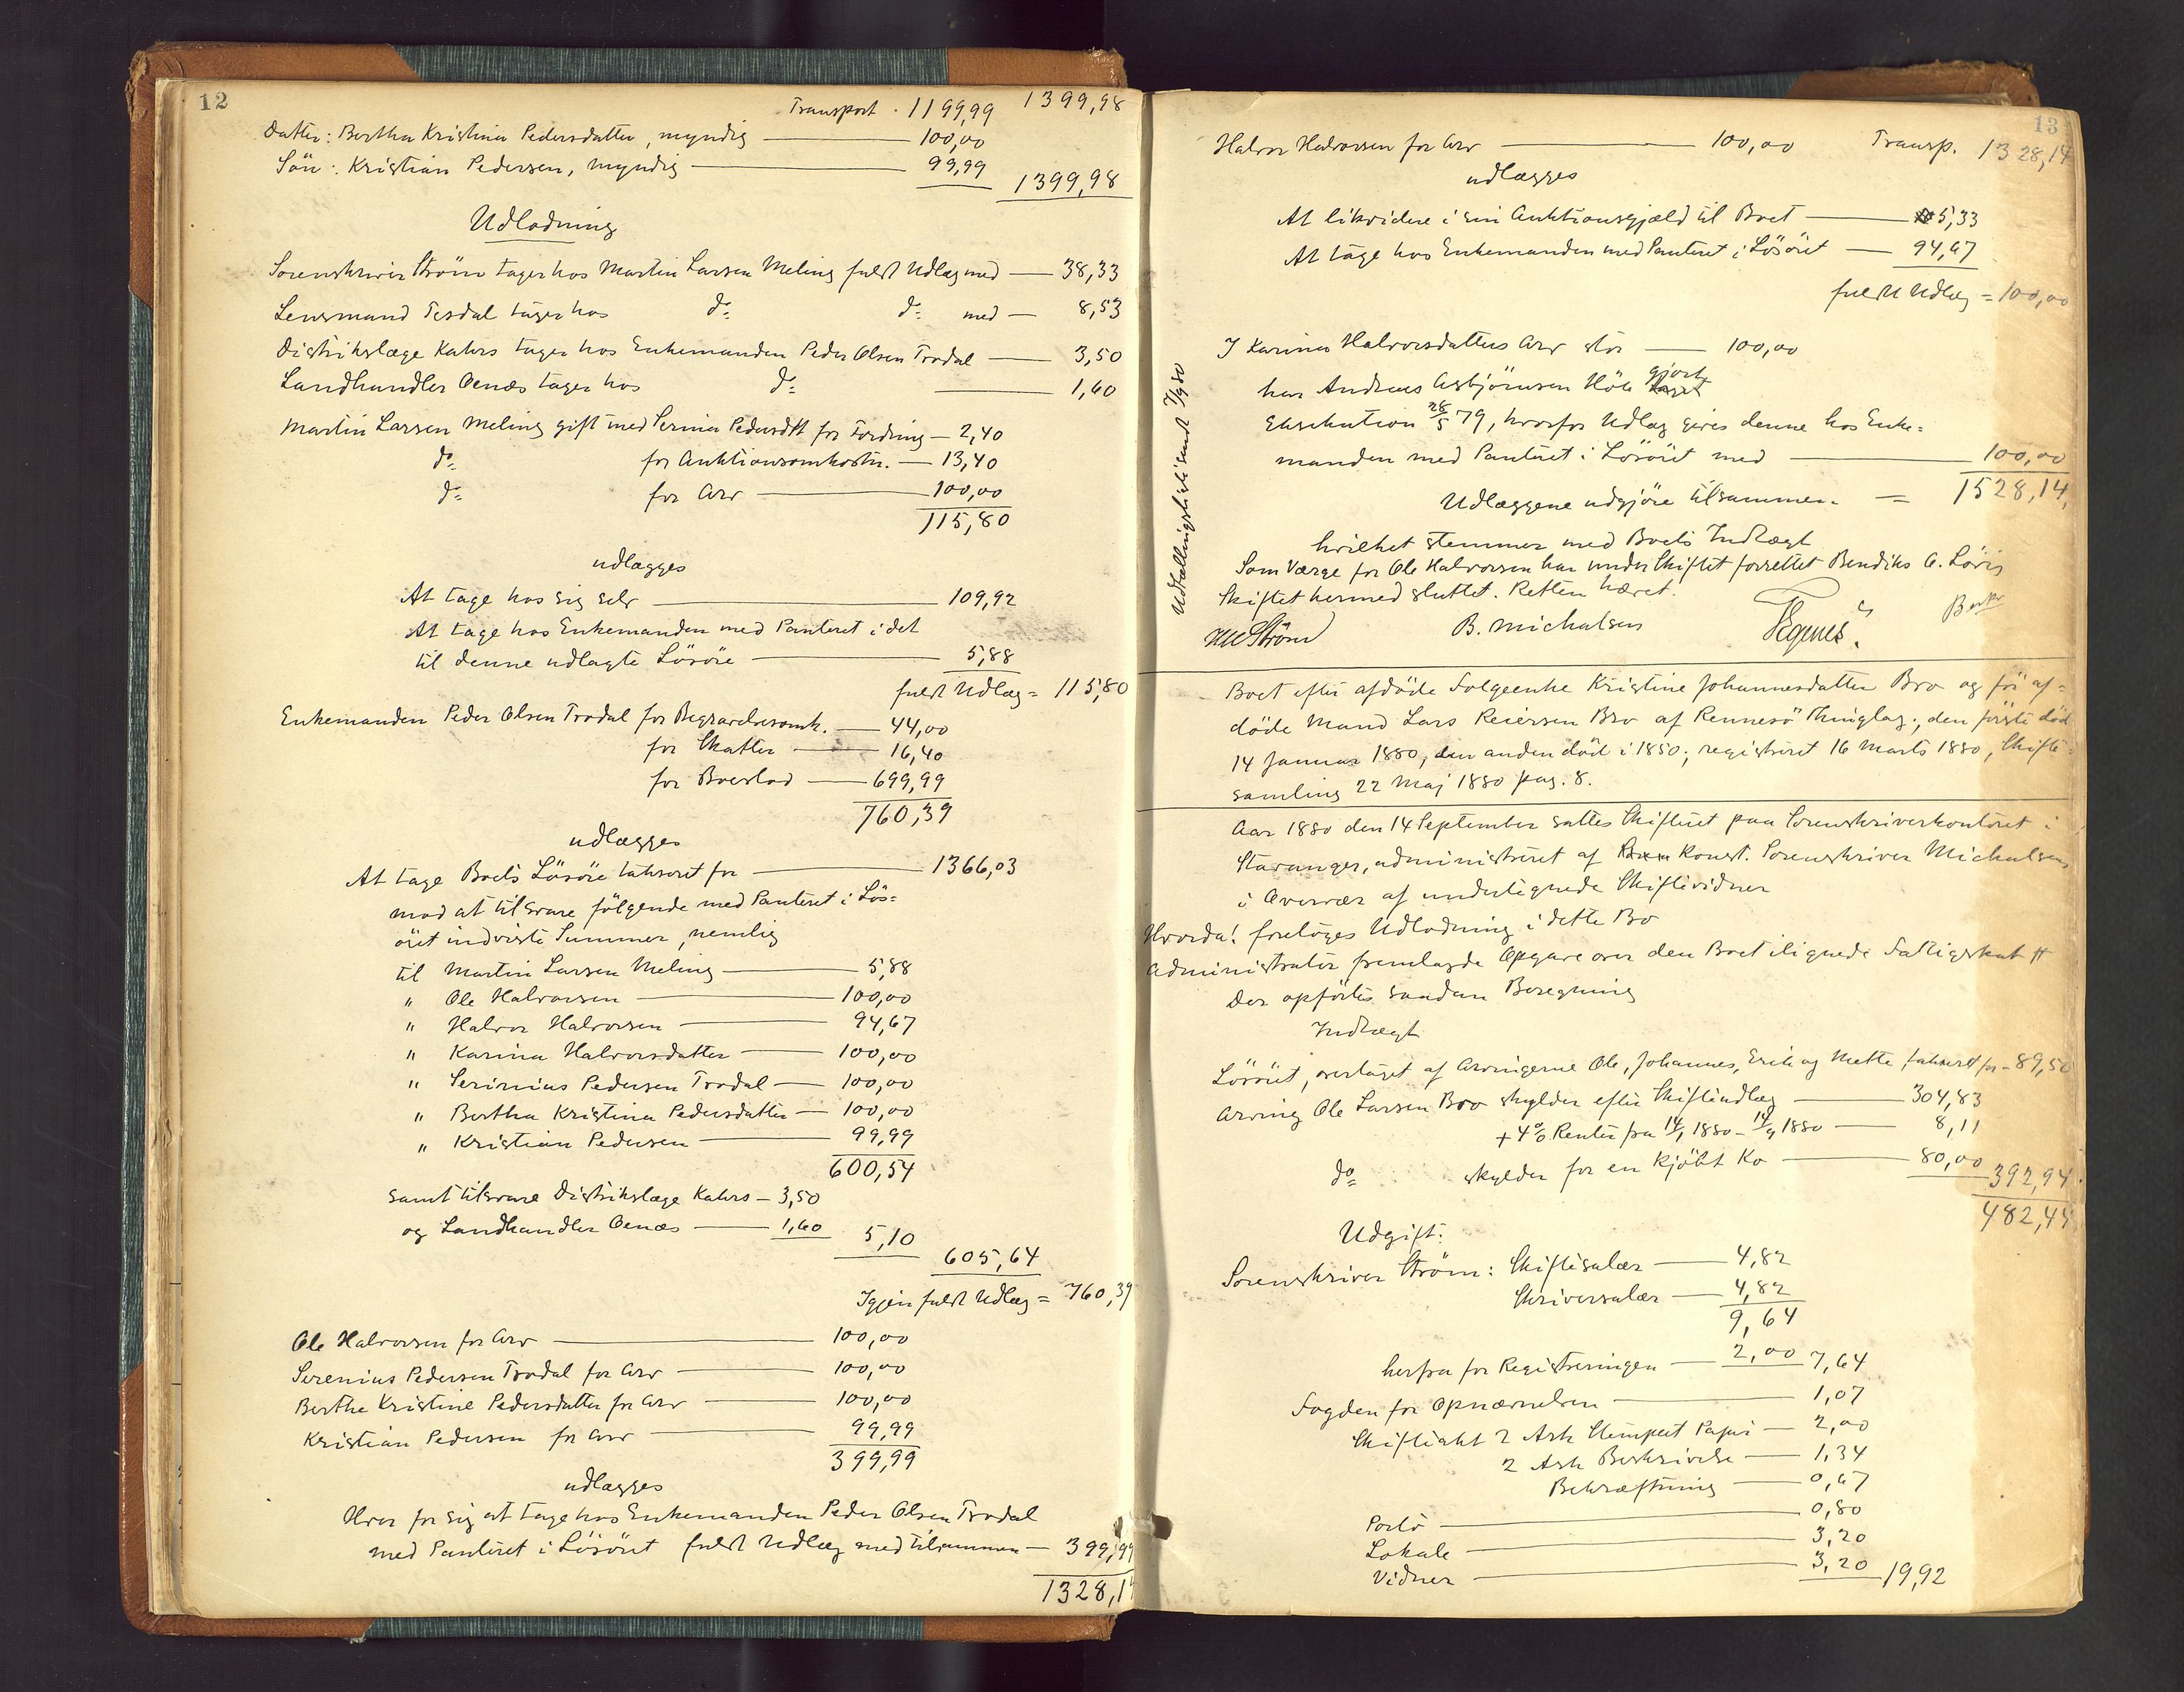 12
Transport . 1199,99 1399,98
Datter: Bertha Kristina Pedersdatter, myndig — 100,00
Sön: Kristian Pedersen, myndig — 99,99 1399,98
Udlodning
Sorenskriver Ström tager hos Martin Larsen Meling fuldt Udlæg med — 38,33
Lensmand Tesdal tager hos do do med — 8,53
Distrikslæge Kahrs tager hos Enkemanden Peder Olsen Trodal — 3,50
Landhandler Oenæs tager hos do — 1,60
Martin Larsen Meling gift med Serina Pedersdtt for Fordring — 2,40
do for Auktionsomkostn. — 13,40
do for Arv — 100,00
115,80
udlægges
At tage hos sig selv — 109,92
At tage hos Enkemanden med Panteret i det
til denne udlagte Lösöre — 5,88
fuldt Udlæg = 115,80
Enkemanden Peder Olsen Trodal for Begravelsesomk. — 44,00
for Skatter — 16,40
for Boeslod — 699,99
760,39
udlægges
At tage Boets Lösöre taxeret for — 1366,03
mod at tilsvare fölgende med Panteret i Lös=
öret indviste Summer, nemlig
til Martin Larsen Meling — 5,88
" Ole Halvorsen — 100,00
" Halvor Halvorsen — 94,67
" Karina Halvorsdatter — 100,00
" Serinius Pedersen Trodal — 100,00
" Bertha Kristina Pedersdatter — 100,00
" Kristian Pedersen — 99,99
600,54
samt tilsvare Distrikslæge Kahrs — 3,50
og Landhandler Oenæs — 1,60 5,10
605,64
Igjen fuldt Udlæg = 760,39
Ole Halvorsen for Arv — 100,00
Serenius Pedersen Trodal for Arv — 100,00
Berthe Kristine Pedersdatter for Arv — 100,00
Kristian Pedersen for Arv — 99,99
399,99
udlægges
Hver for sig at tage hos Enkemanden Peder Olsen Trodal
med Panteret i Lösöret fuldt Udlæg med tilsammen — 399,99
1328,14
13
Halvor Halvorsen for Arv — 100,00 Transp. 1328,14
udlægges
At likvidere i sin Auktionsgjæld til Boet — 5,33
At tage hos Enkemanden med Panteret i Lösöret — 94,67
fuldt Udlæg = 100,00
I Karina Halvorsdatters Arv stor — 100,00
har Andreas Asbjörnsen Höle gjort
Eksekution 28/5 79, hvorfor Udlæg gives denne hos Enke=
manden med Panteret i Lösöret med — 100,00
Udlæggene udgjöre tilsammen = 1528,14
hvilket stemmer med Boets Indtægt
Som Værge for Ole Halvorsen har under Skiftet forrettet Bendiks A. 
Skiftet hermed sluttet. Retten hævet.
Ström B. Michalsen
Udtællingsliste sendt 7/9 80
Boet efter afdöde Folgeenke Kristine Johannesdatter Bro og för af=
döde Mand Lars Reiersen Bro af Rennesö Thinglag; den förste död
14 Januar 1880, den anden död i 1850; registreret 16 Marts 1880, Skifte=
samling 22 Maj 1880 pag. 8.
Aar 1880 den 14 September sattes Skifteret paa Sorenskriverkontoret i
Stavanger, administreret af Konst. Sorenskriver Michalsen
i Overvær af undertegnede Skiftevidner
Hvorda! foretoges Udlodning i dette Bo
Administrator fremlagde Opgave over den Boet ilignede Fattigskat #
Der opförtes saadan Beregning
Indtægt
Lösöret, overtaget af Arvingerne Ole, Johannes, Erik og Mette, taxeret for — 89,50
Arving Ole Larsen Bro skylder efter Skifteudlæg — 304,83
+ 4% Renter fra 14/1 1880 – 14/9 1880 — 8,11
do skylder for en kjöbt Ko — 80,00 392,94
482,44
Udgift:
Sorenskriver Ström: Skiftesalær — 4,82
Skriversalær — 4,82
9,64
herfra for Registreringen — 2,00 7,64
Fogden for Opnævnelsen — 1,07
Skifteakt 2 Ark Stemplet Papir — 2,00
2 Ark Beskrivelse — 1,34
Bekræftning — 0,67
Porto — 0,80
Lokale — 3,20
Vidner — 3,20 19,92